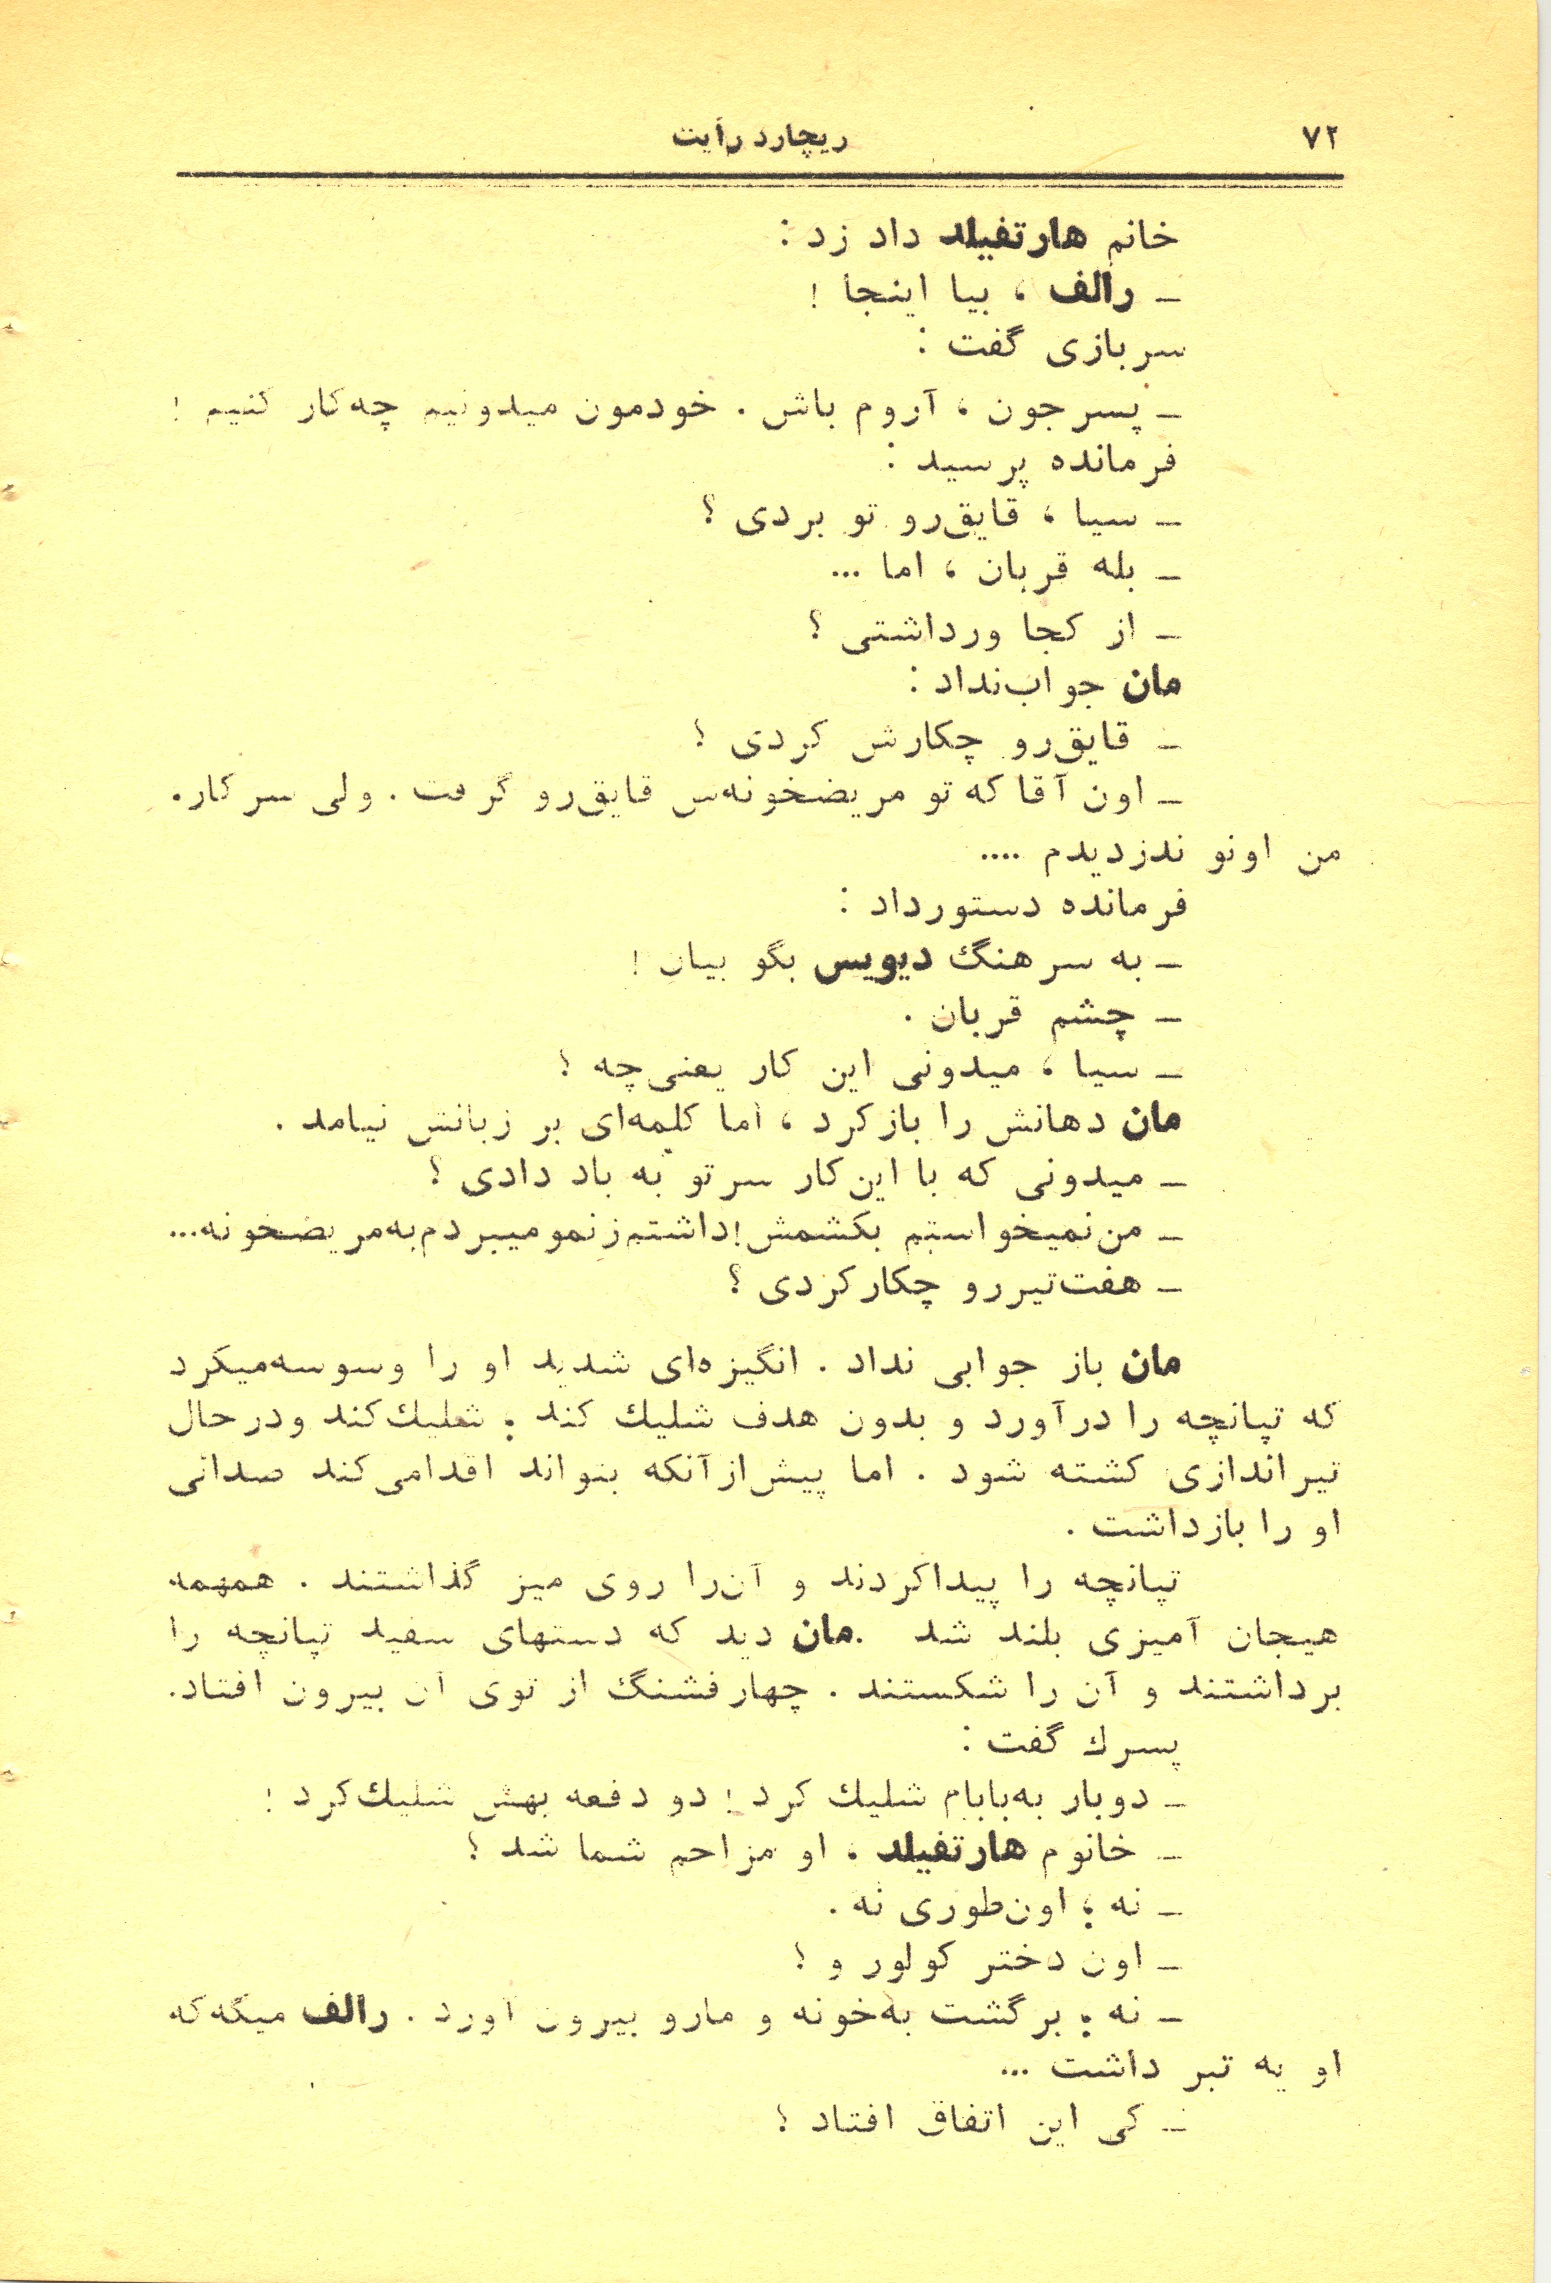 ۷۲
ریچارد رایت
خانم هارتفیلد داد زد :
ـ رالف ، بیا اینجا !
سربازی گفت :
ـ پسرجون ، آروم باش . خودمون میدونیم چه‌کار کنیم !
فرمانده پرسید :
ـ سیا ، قایق‌رو تو بردی ؟
ـ بله قربان ، اما ...
ـ از کجا ورداشتی ؟
مان جواب‌نداد :
ـ قایق‌رو چکارش کردی ؟
ـ اون آقا که تو مریضخونه‌س قایق‌رو گرفت . ولی سرکار.
من اونو ندزدیدم ....
فرمانده دستورداد :
ـ به سرهنگ دیویس بگو بیان !
ـ چشم قربان .
ـ سیا ، میدونی این کار یعنی‌چه ؟
مان دهانش را بازکرد ، اما کلمه‌ای بر زبانش نیامد .
ـ میدونی که با این‌کار سرتو به باد دادی ؟
ـ من‌نمیخواستم بکشمش!داشتم‌زنمومیبردم‌به‌مریضخونه...
ـ هفت‌تیررو چکارکردی ؟
مان باز جوابی نداد . انگیزه‌ای شدید او را وسوسه‌میکرد
که تپانچه را درآورد و بدون هدف شلیك کند ؛ شلیك‌کند ودرحال
تیراندازی کشته شود . اما پیش‌ازآنکه بتواند اقدامی‌کند صدائی
او را بازداشت .
تپانچه را پیداکردند و آن‌را روی میز گذاشتند . همهمه
هیجان آمیزی بلند شد .مان دید که دستهای سفید تپانچه را
برداشتند و آن را شکستند . چهارفشنگ از توی آن بیرون افتاد.
پسرك گفت :
ـ دوبار به‌بابام شلیك کرد ! دو دفعه بهش شلیك‌کرد !
ـ خانوم هارتفیلد ، او مزاحم شما شد ؟
ـ نه ؛ اون‌طوری نه .
ـ اون دختر کولور و ؟
ـ نه ؛ برگشت به‌خونه و مارو بیرون آورد . رالف میگه‌که
او یه تبر داشت ...
ـ کی این اتفاق افتاد ؟